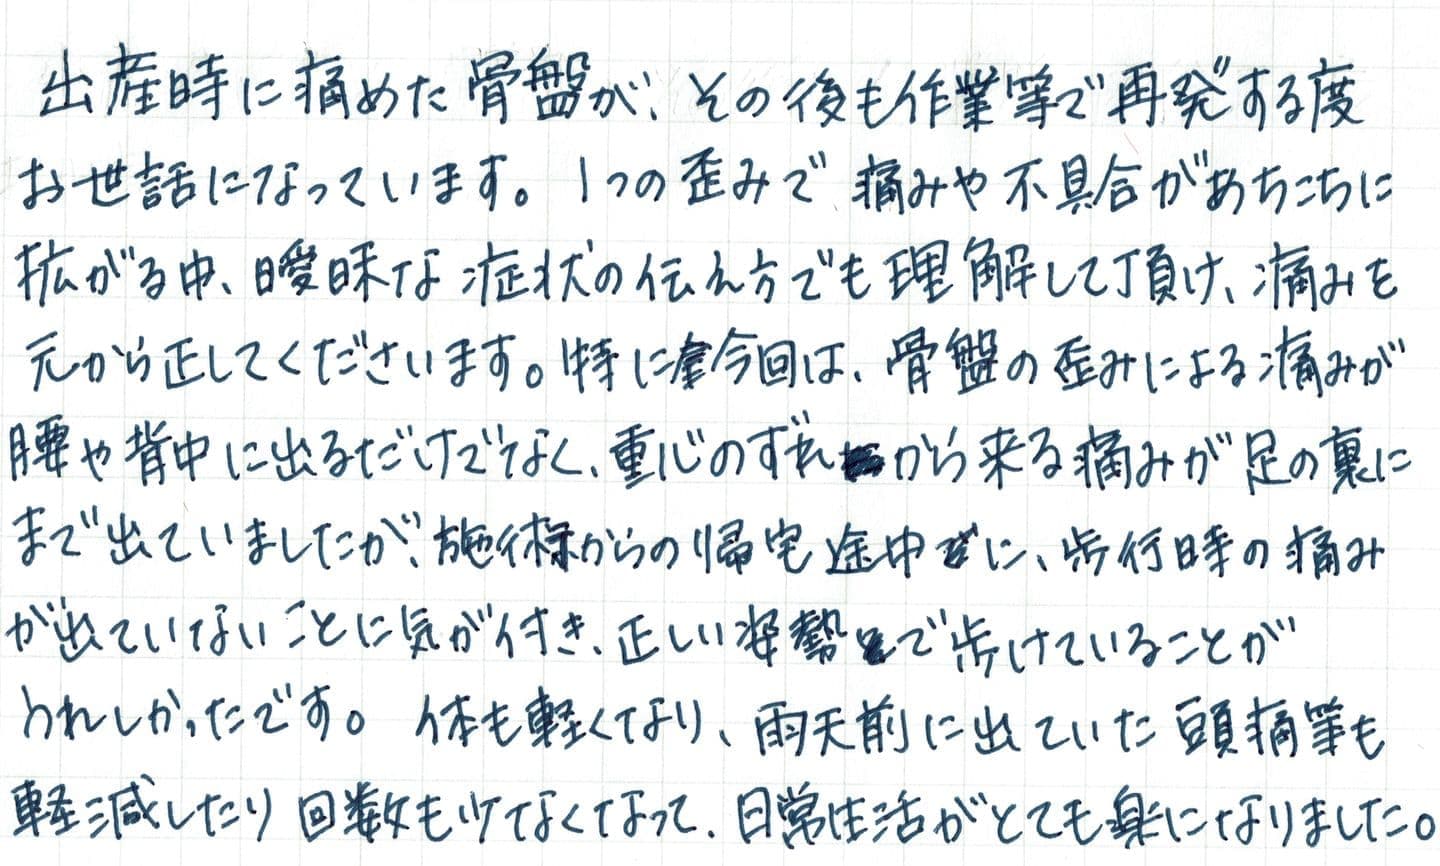 出産時に痛めた骨盤が、その後も作業等で再発する度
お世話になっています。1つの歪みで痛みや不具合があちこちに
拡がる中、曖昧な症状の伝え方でも理解して頂け、痛みを
元から正してくださいます。特に今回は、骨盤の歪みによる痛みが
腰や背中に出るだけでなく、重心のずれから来る痛みが足の裏に
まで出ていましたが、施術からの帰宅途中に、歩行時の痛み
が出ていないことに気が付き、正しい姿勢で歩けていることが
うれしかったです。体も軽くなり、雨天前に出ていた頭痛等も
軽減したり回数も少なくなって、日常生活がとても楽になりました。